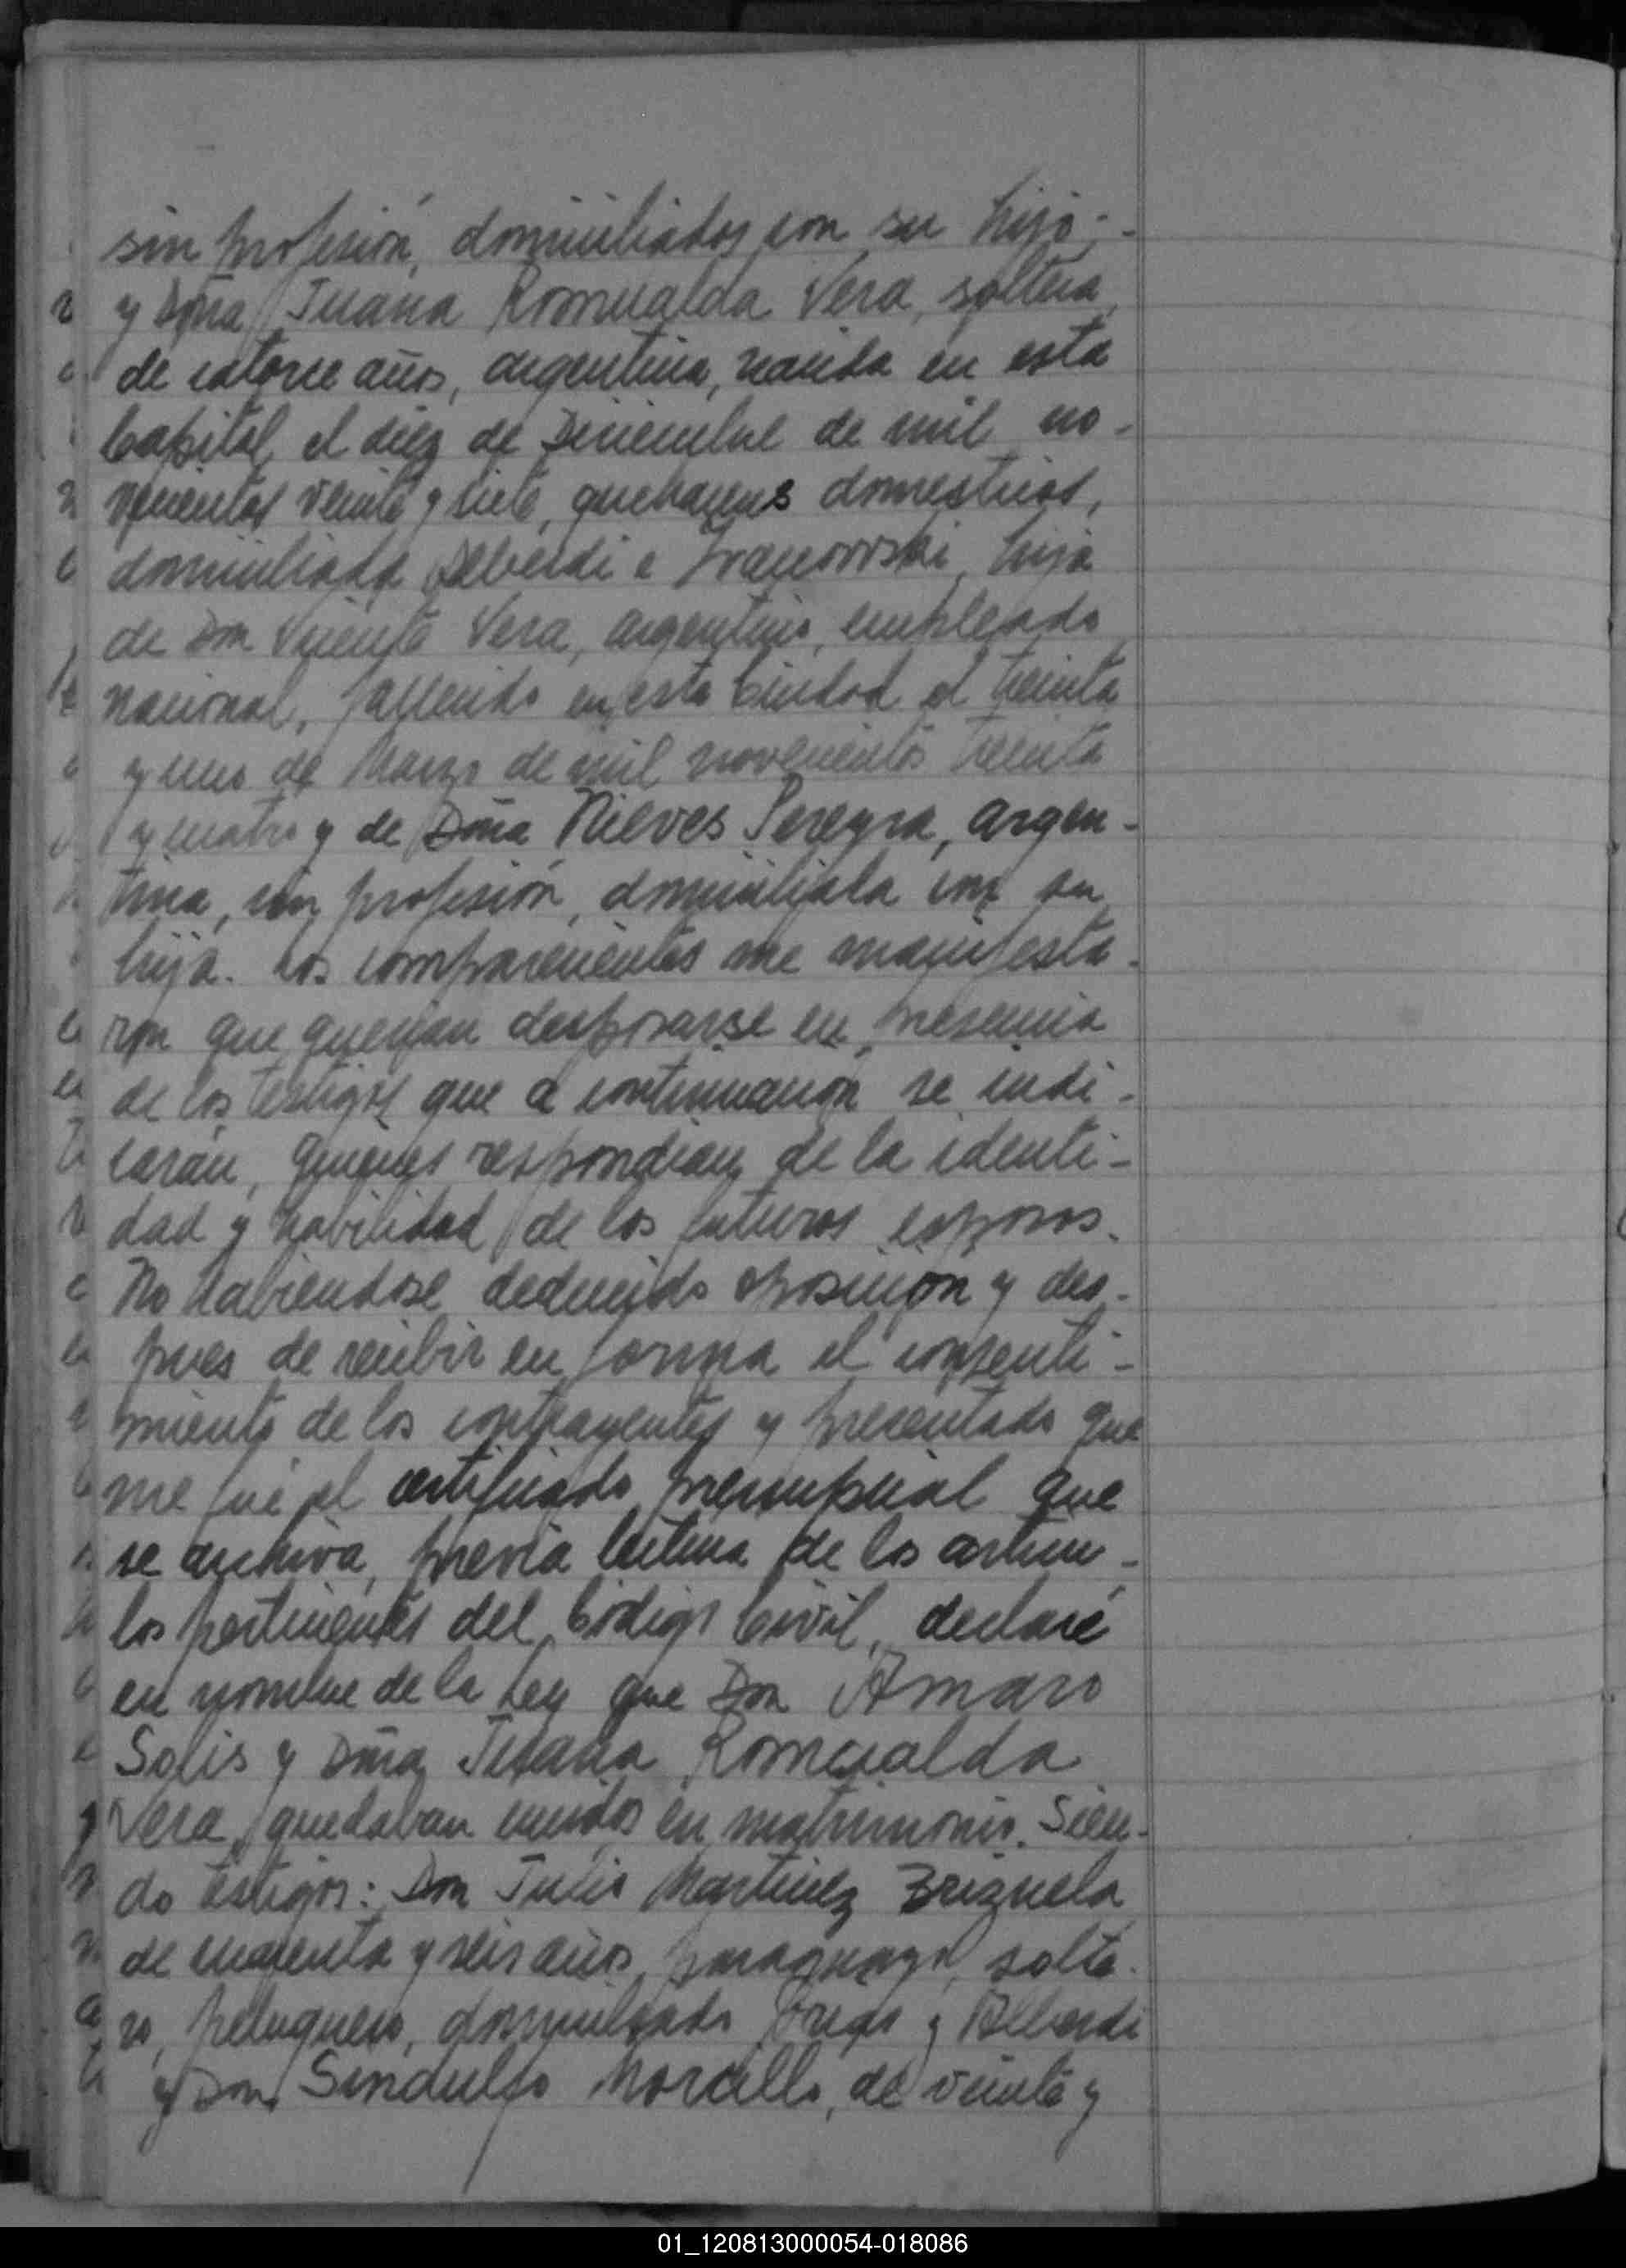 sin profesión, domiciliados con su hijo;-
y Doña Juana Romualda Vera, soltera,
de catorce años, argentina, nacida en esta
Capital el diez de Diciembre de mil no-
vecientos veinte y siete, quehaceres domesticos,
domiciliada Alberdi e Ivanowski, hija
de Don Vicente Vera, argentino, empleado
nacional, fallecido en esta Ciudad el treinta
y uno de Marzo de mil novecientos treinta
y cuatro y de Doña Nieves Pereyra, argen-
tina, sin profesión, domiciliada con su
hija. Los comparecientes me manifesta-
ron que querían desposarse en presencia
de los testigos que a continuación se indi-
carán, quienes respondían de la identi-
dad y habilidad de los futuros esposos.
No habiendose deducido oposición y des-
pues de recibir en forma el consenti-
miento de los contrayentes y presentado que
me fué el certificado prenupcial que
se archiva, previa lectura de los artícu-
los pertinentes del Código Civil, declaré
en nombre de la Ley que Don Amaro
Solis y Doña Juana Romualda
Vera, quedaban unidos en matrimonio. Sien-
do testigos: Don Julio Martinez Brizuela
de cincuenta y seis años, paraguayo, solte-
ro, peluquero, domiciliado y Alberdi
y Don Sindulfo Morcillo, de veinte y
01_120813000054-018086